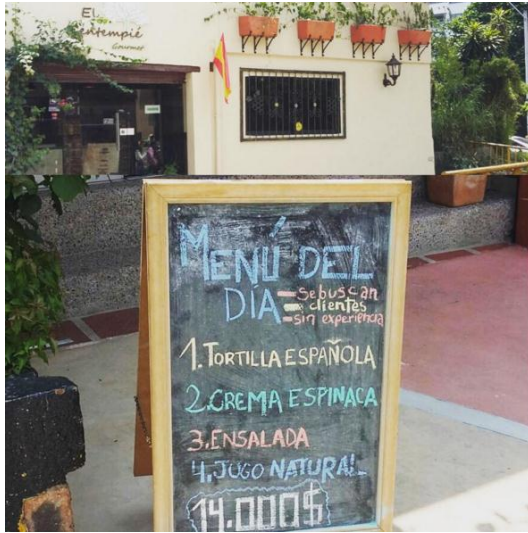 El
entempié
Gourmet
MENÚ DEL
DÍA
se buscan
clientes
sin experiencia
1. TORTILLA ESPAÑOLA
2. CREMA ESPINACA
3. ENSALADA
4. JUGO NATURAL
14.000$